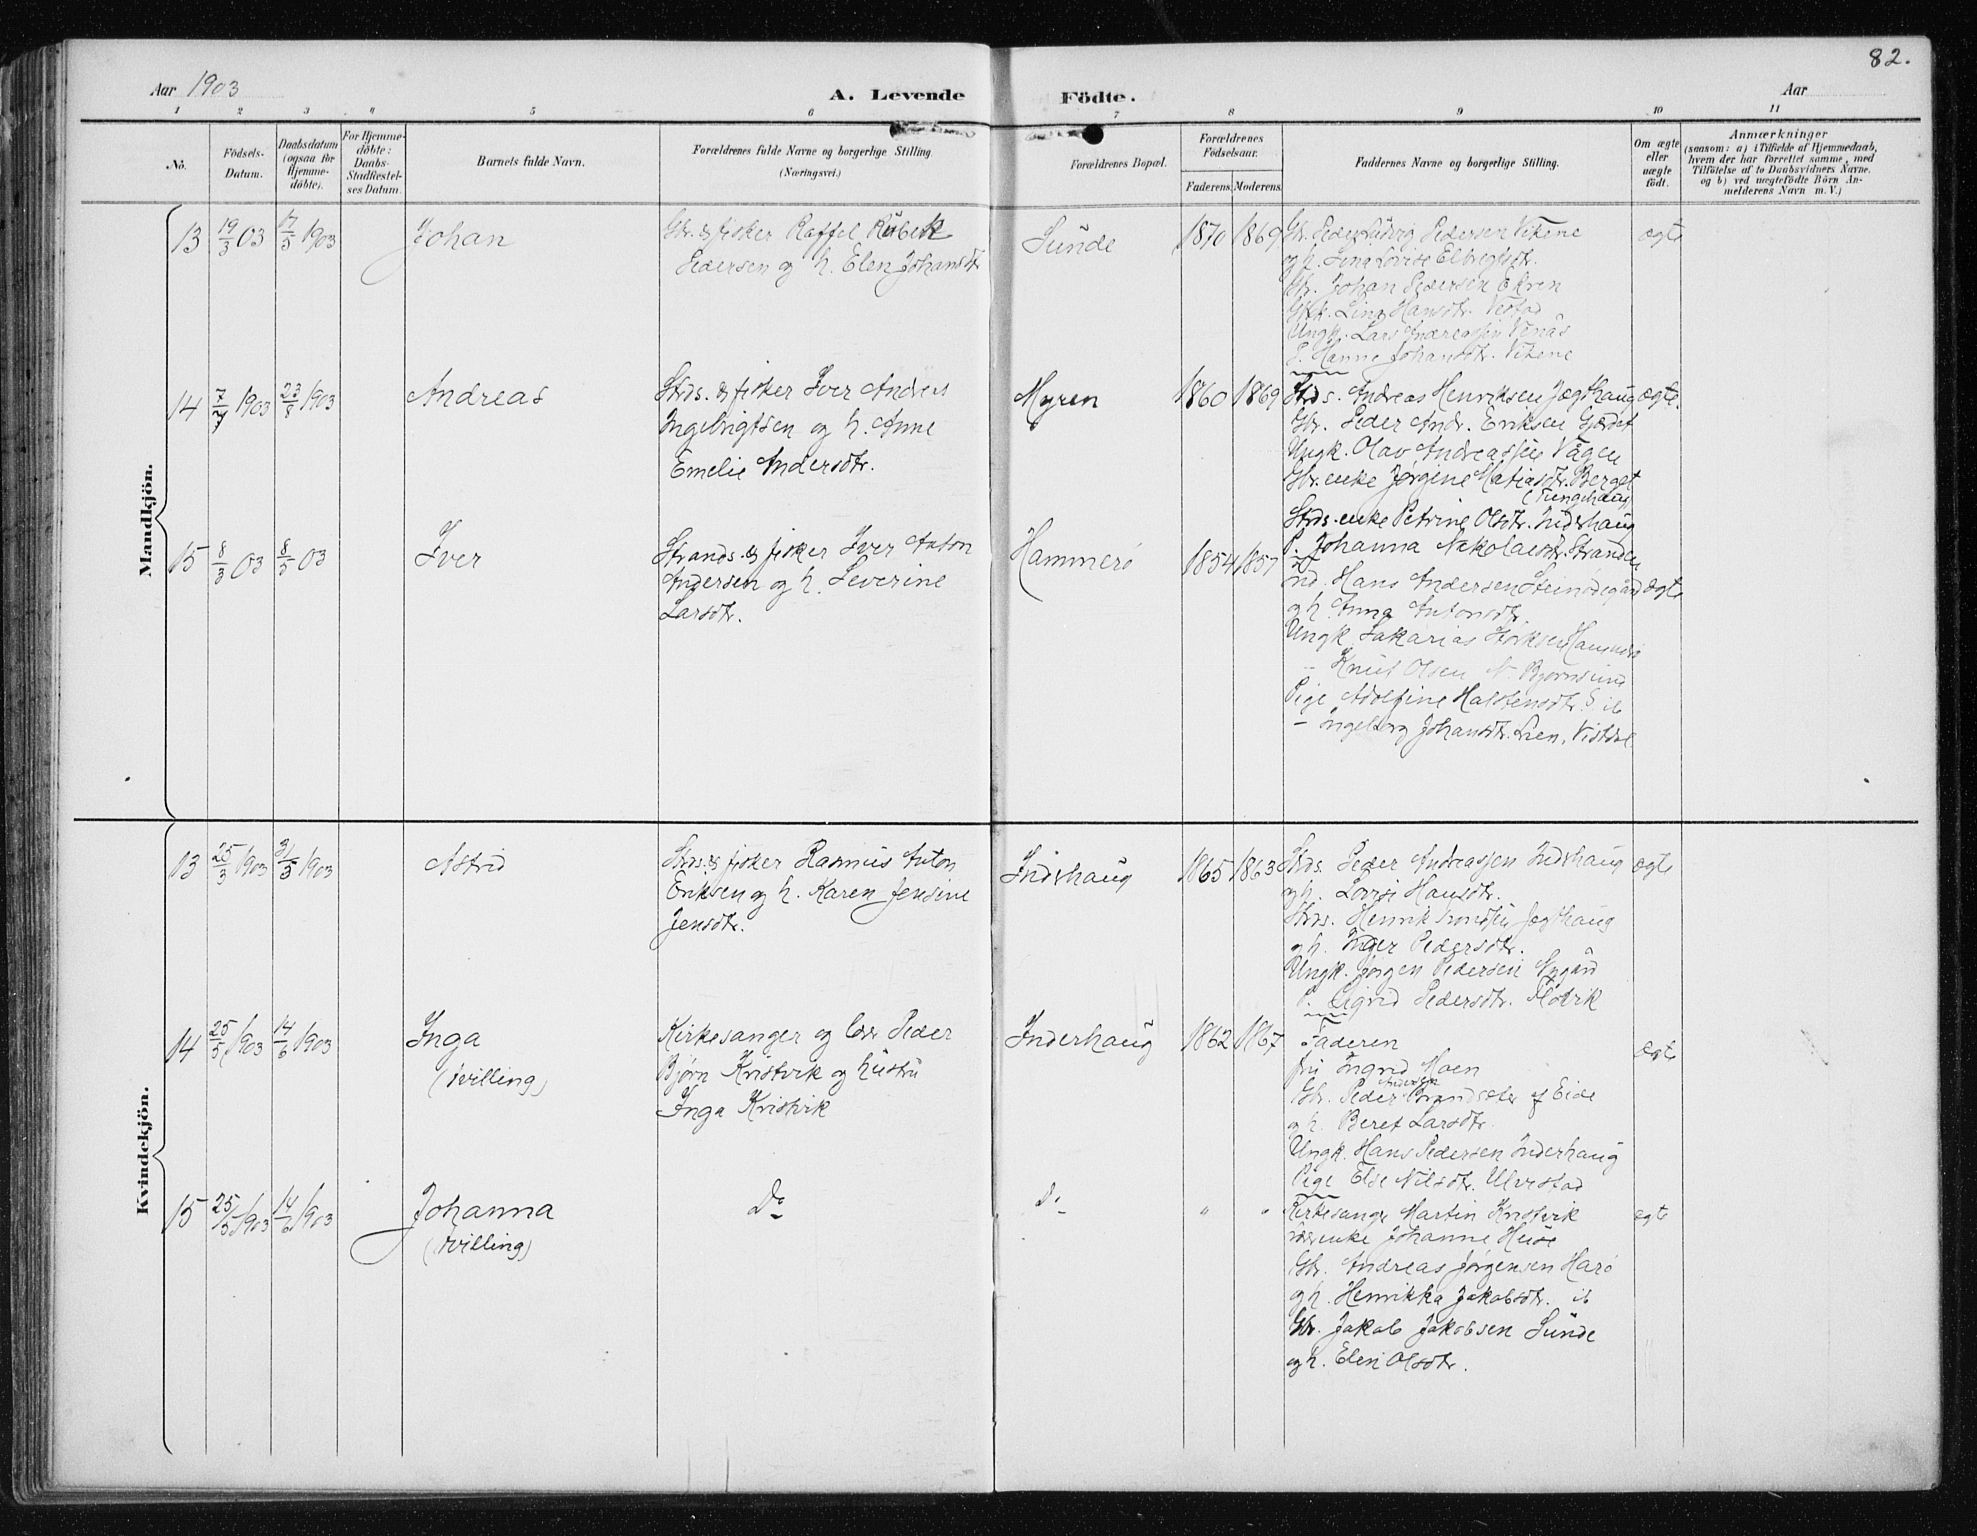 82.
Aar 1903
A. Levende Födte.
Aar
1 2 3 4 5 6 7 8 9 10 11
No.
Födsels-Datum.
Daabsdatum (ogsaa for Hjemmedøbte).
For Hjemmedøbte: Daabs-Stadfæstelses Datum.
Barnets fulde Navn.
Forældrenes fulde Navne og borgerlige Stilling. (Næringsvei.)
Forældrenes Bopæl.
Forældrenes Födselsaar.
Faderens Moderens
Faddernes Navne og borgerlige Stilling.
Om ægte eller uægte födt.
Anmærkninger
(saasom: a) i Tilfælde af Hjemmedaab, hvem der har forrettet samme, med Tilföielse af to Daabsvidners Navne. og b) ved uægtefödte Börn Anmelderens Navn m. V.)
Mandkjön.
13 19/3 03 17/5 1903 Johan
Gbr. & fisker Raffel Röbek
Pedersen og h. Elen Johansdtr
Sunde 1870 1869
Pedersen Vikene
og h. Lina Lovise
Gbr. Johan Pedersen Ekren
Lina Hansdtr.
Ungk. Lars Andreassen
P. Hanne Johansdtr. Vikene
ægte
14 1903 23/8 1903 Andreas
Strds. & fisker Iver Andreas
Ingebrigtsen og h. Anne
Emelie Andersdtr.
Myren 1860 1869
Strds. Andreas Henriksen Jægthaug
Gbr. Peder Andr. Eriksen Gjerdet
Ungk. Olav Andreassen Vågen
Gbr. enke Jørgine Matiasdtr. Berget
Strds. enke Petrine Olsdtr. Inderhaug
P. Johanna Nikolaesdtr. Stranden
ægte.
15 8/3 03 8/5 03 Iver
Strands. & fisker Iver Anton
Andersen og h. Severine
Larsdtr.
Hammerø 1854 1857
Hans Andersen Steinødegård
og h. Anna Antonsdtr.
Ungk. Sakarias
– Knut Olsen N. Bjørnsund
Pige Adolfine Halstensdtr. ib
– Ingeborg Johansdtr. Lien, Vistdal
ægte
Kvindekjön.
13 25/3 1903 31/5 1903 Astrid
Strds. & fisker Rasmus Anton
Eriksen og h. Karen Jensine
Jensdtr.
Inderhaug 1865 1863
Strds. Peder Andreassen Inderhaug
og h. Lovise Hansdtr.
Strds. Henrik Jægthaug
og h. Inger Pedersdtr.
Ungk. Jørgen Pedersen Nygård
P. Sigrid Pedersdtr. Flovik
ægte
14 25/5 1903 14/6 1903 Inga
(tvilling)
Kirkesanger og lær. Peder
Bjørn Kristvik og hustru
Inga Kristvik
Inderhaug 1862 1867
Faderen
fru Ingrid Moen
Andersen
Gbr. Peder Brandsæter af Eide
og h. Beret Larsdtr.
Ungk. Hans Pedersen Inderhaug
Pige Else Nilsdtr. Ulvestad
ægte
15 25/5 1903 14/6 1903 Johanna
(tvilling)
Do Do " "
Kirkesanger Martin Kristvik
enke Johanne Huse
Gbr. Andreas Jørgensen Harø
og h. Henrikka Jakobsdtr. ib
Gbr. Jakob Jakobsen Sunde
og h. Elen Olsdtr.
ægte